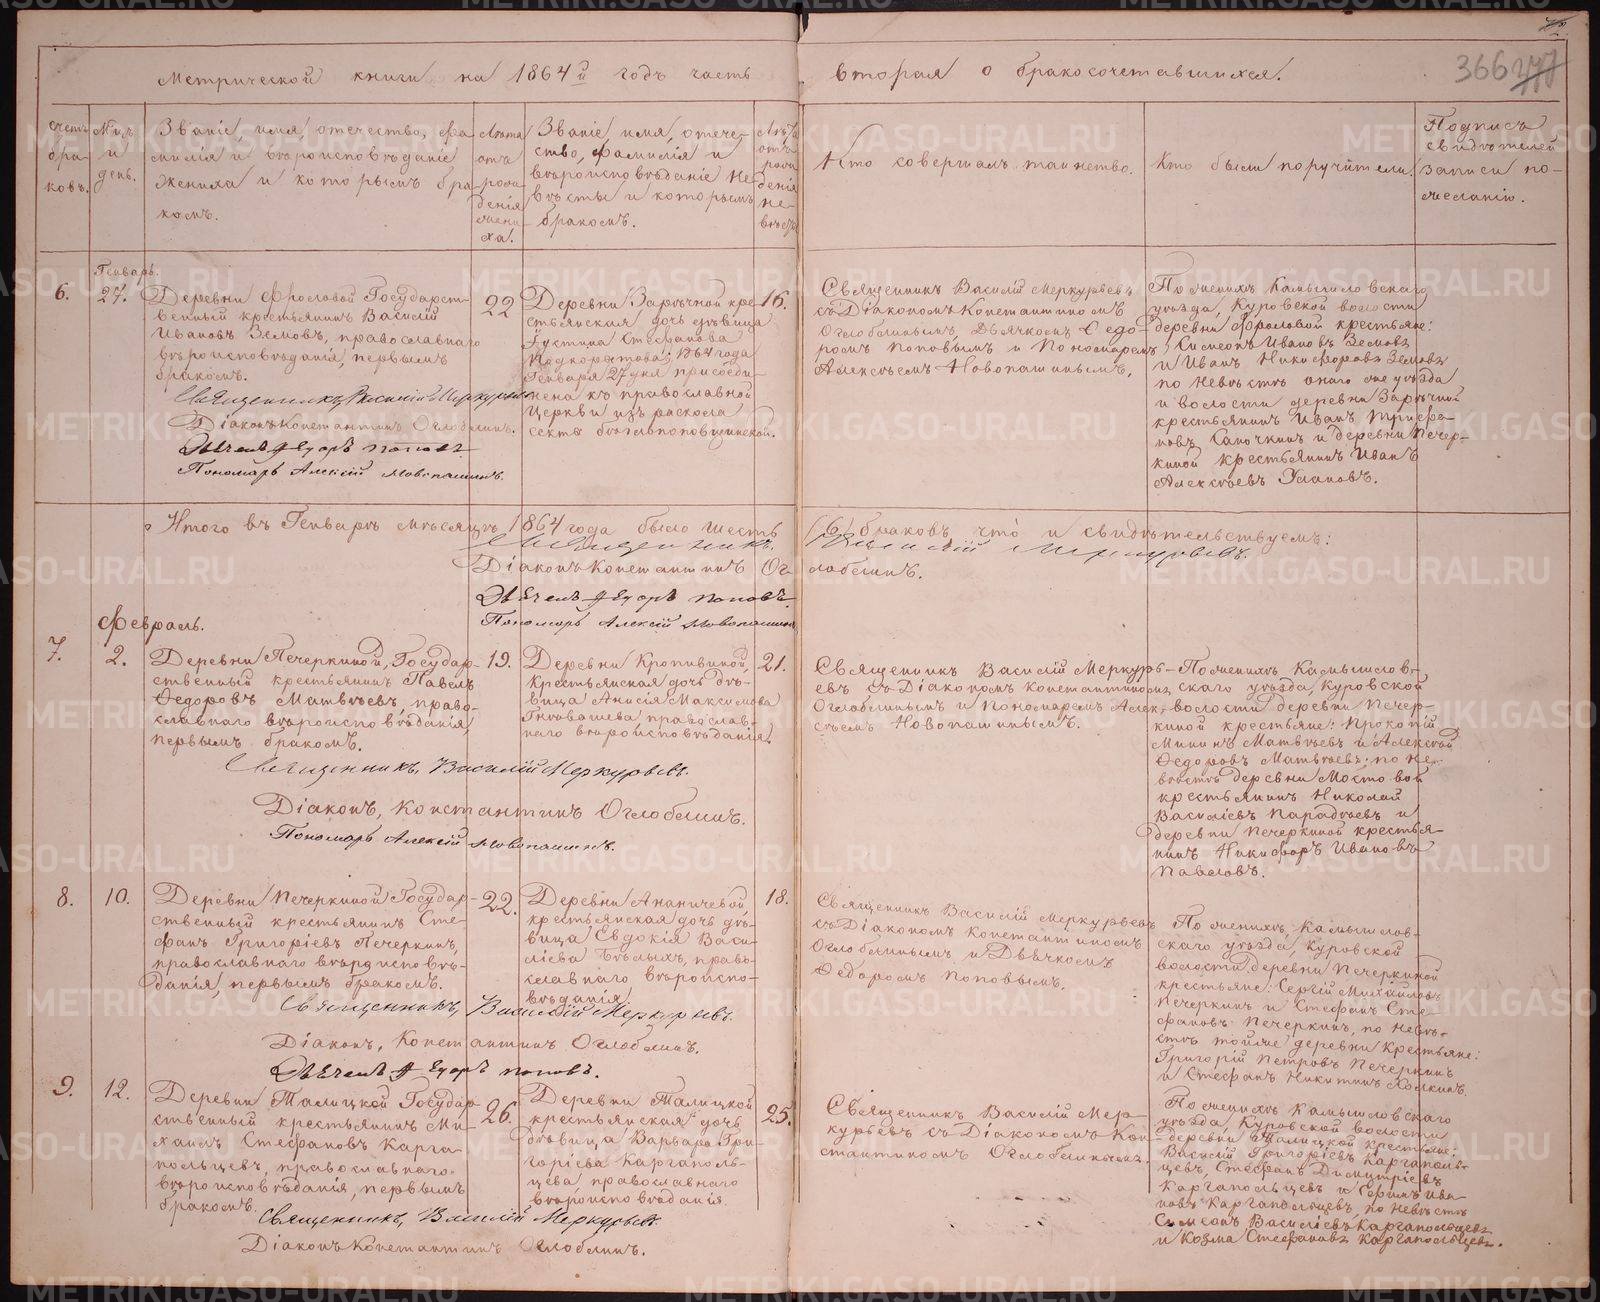 Метрической книги на 1864й годъ часть
вторая о бракосочетавшихся.
366
счетъ бра- ковъ.
М-цъ и день.
Званіе, имя, отечество, фа-
милія и вѣроисповѣданіе
жениха и которымъ бра-
комъ.
Лѣта
отъ
рож-
денія
жени-
ха.
Званіе, имя, отече-
ство, фамилія и
вѣроисповѣданіе не-
вѣсты и которымъ
бракомъ.
Лѣта
отъ
рож-
денія
не-
вѣсты
Кто совершалъ таинство.
Кто были поручители.
Подпись
свидѣтелей
записи по-
желанію.
Генварь.
6.
27.
Деревни Фроловой Государст-
венный крестьянинъ Василій
Ивановъ Земовъ, православнаго
вѣроисповѣданія, первымъ
бракомъ.
Священникъ, Василій Меркурьевъ
Діаконъ Константинъ Оглоблинъ.
Дьячекъ Федоръ Поповъ.
Пономарь Алексій Новопашинъ.
22
Деревни Зарѣчной кре-
стьянская дочь дѣвица
Устина Стефанова
Подкорытова; 1864 года
Генваря 27 дня присоеди-
нена къ православной
Церкви изъ раскола
секты бѣглопоповщинской.
16.
Священникъ Василій Меркурьевъ
съ Діакономъ Константиномъ
Оглоблинымъ, Дьячкомъ Федо-
ромъ Поповымъ и Пономаремъ
Алексѣемъ Новопашинымъ.
По женихѣ Камышловскаго
уѣзда, Куровской волости
деревни Фроловой крестьяне:
Симеонъ Ивановъ Земовъ
и Иванъ Никифоровъ Земовъ
по невѣстѣ онаго же уѣзда
и волости деревни Зарѣчной
крестьянинъ Иванъ Трифо-
новъ Сапочкинъ и деревни Печер-
киной крестьянинъ Иванъ
Алексѣевъ Улановъ.
Итого въ Генварѣ мѣсяцѣ 1864 года было шесть
(6) браковъ что и свидѣтельствуемъ:
Священникъ
Василій Меркурьевъ.
Діаконъ Константинъ Ог-
лоблинъ.
Дьячекъ Федоръ Поповъ.
Пономарь Алексій Новопашинъ
Февраль.
7.
2.
Деревни Печеркиной, Государ-
ственный крестьянинъ Павелъ
Федоровъ Матвѣевъ, право-
славнаго вѣроисповѣданія,
первымъ бракомъ.
Священникъ, Василій Меркурьевъ.
Діаконъ, Константинъ Оглоблинъ.
Пономарь Алексій Новопашинъ.
19.
Деревни Кропивиной,
крестьянская дочь дѣ-
вица Анисія Максимова
Гнѣвашева православ-
наго вѣроисповѣданія.
21.
Священникъ Василій Меркурь-
евъ съ Діакономъ Константиномъ
Оглоблинымъ и Пономаремъ Алек-
сѣемъ Новопашинымъ.
По женихѣ Камышлов-
скаго уѣзда, Куровской
волости деревни Печер-
киной крестьяне: Прокопій
Мининъ Матвѣевъ и Алексѣй
Федоровъ Матвѣевъ; по не-
вѣстѣ деревни Мостовой
крестьянинъ Николай
Василіевъ Парадѣевъ и
деревни Печеркиной крестья-
нинъ Никифоръ Ивановъ
Павловъ.
8.
10.
Деревни Печеркиной Государ-
ственный крестьянинъ Сте-
фанъ Григоріевъ Печеркинъ,
православнаго вѣроисповѣ-
данія, первымъ бракомъ.
Священникъ, Василій Меркурьевъ.
Діаконъ, Константинъ Оглоблинъ.
Дьячекъ Федоръ Поповъ.
22.
Деревни Ананичевой,
крестьянская дочь дѣ-
вица Евдокія Васи-
лієва Бѣлыхъ, право-
славнаго вѣроиспо-
вѣданія.
18.
Священникъ Василій Меркурьевъ
съ Діакономъ Константиномъ
Оглоблинымъ и Дьячкомъ
Федоромъ Поповымъ.
По женихѣ, Камышлов-
скаго уѣзда, Куровской
волости деревни Печеркиной
крестьяне: Сергій Михайловъ
Печеркинъ и Стефанъ Сте-
фановъ Печеркинъ, по невѣ-
стѣ тойже деревни крестьяне:
Григорій Петровъ Печеркинъ
и Стефанъ Никитинъ Холкинъ.
9.
12.
Деревни Талицкой Государ-
ственный крестьянинъ Ми-
хаилъ Стефановъ Карга-
польцевъ, православнаго
вѣроисповѣданія, первымъ
бракомъ.
Священникъ, Василій Меркурьевъ
Діаконъ Константинъ Оглоблинъ.
26.
Деревни Талицкой
крестьянская дочь
дѣвица Варвара Гри-
горіева Каргаполь-
цева, православнаго
вѣроисповѣданія
25.
Священникъ Василій Мер-
курьевъ съ Діакономъ Кон-
стантиномъ Оглоблинымъ.
По женихѣ Камышловскаго
уѣзда, Куровской волости
деревни Талицкой крестьяне:
Василій Григоріевъ Каргаполь-
цевъ, Стефанъ Димитріевъ
Каргапольцевъ и Ефимъ Ива-
новъ Каргапольцевъ, по невѣстѣ
Симеонъ Василіевъ Каргапольцевъ
и Козма Стефановъ Каргапольцевъ.
METRIKI.GASO-URAL.RU